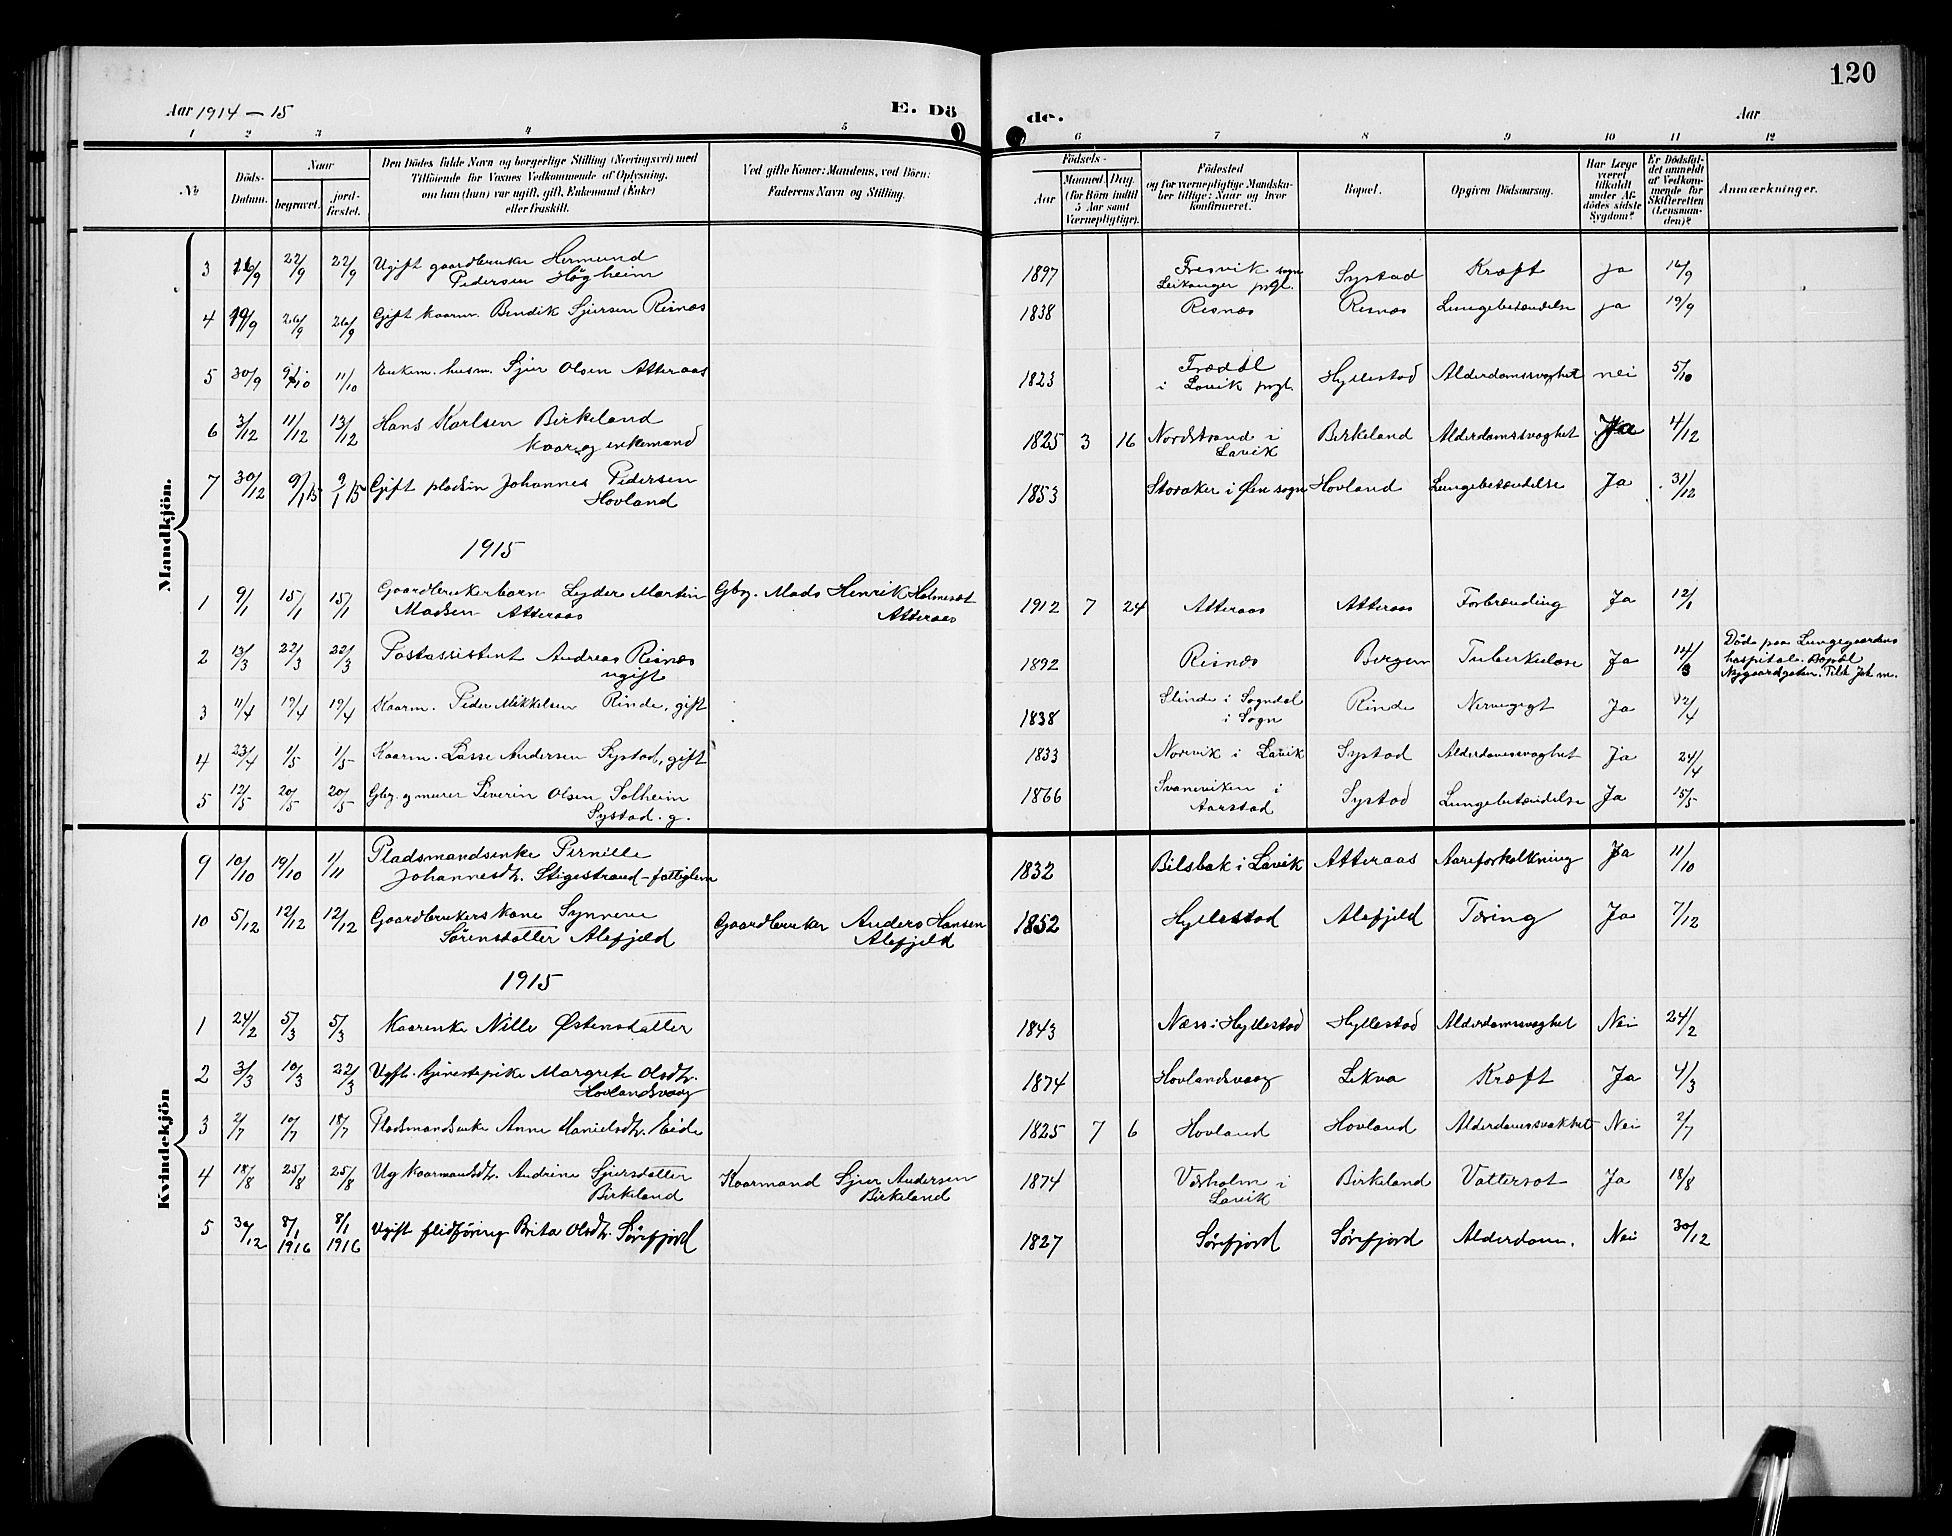 120
Aar 1914 – 15
E. Dö
de.
Aar
1 2 3 4 5 6 7 8 9 10 11 12
No
Döds-
Datum.
Naar
begravet.
jord-
fæstet.
Den Dödes fulde Navn og borgerlige Stilling (Næringsvei) med
Tilföiende for Voxnes Vedkommende af Oplysning,
om han (hun) var ugift, gift, Enkemand (Enke)
eller fraskilt.
Ved gifte Koner: Mandens, ved Börn:
Faderens Navn og Stilling.
Födsels-
Aar
Maaned
Dag
(for Börn indtil
5 Aar samt
Værnepligtige).
Födested
og for værnepligtige Mandska-
ber tillige: Naar og hvor
konfirmeret.
Bopæl.
Opgiven Dödsaarsag.
Har Læge
været
tilkaldt
under Af-
dödes sidste
Sygdom?
Er Dödsfal-
det anmeldt
af Vedkom-
mende for
Skifteretten
(Lensman-
den)?
Anmærkninger.
Mandkjön.
3 16/9 22/9 22/9 Ugift gaardbruker Hermund 1897 Fresvik sogn Systad Kræft ja 16/9
Pedersen Høgheim Leikanger prgl.
4 19/9 26/9 26/9 Gift kaarm. Bendik Sjursen Risnæs 1838 Risnæs Risnæs Lungebetændelse ja 19/9
5 30/9 11/10 Enkem. husm. Sjur Olsen Atteraas 1823 Hyllestad Alderdomssvaghet nei 5/10
i Lavik prgl.
6 3/12 11/12 13/12 Hans Karlsen Birkeland 1825 3 16 Nordstrand i Birkeland Alderdomssvaghet Ja 4/12
kaar. og enkemand Lavik
7 30/12 9/1 15 9/1 15 Gift pladsm Johannes Pedersen 1853 Storaker i Øen sogn Hovland Lungebetændelse Ja 31/12
Hovland
1915
1 9/1 15/1 15/1 Gaardbrukerbarn Lyder Martin Gbr. Mads Henrik Holmeset 1912 7 24 Atteraas Atteraas Forbrænding Ja 12/1
Madsen Atteraas Atteraas
2 13/3 22/3 22/3 Postassistent Andreas Risnæs 1892 Risnæs Bergen Tuberkulose Ja 14/3 Døde paa Lungegaardens
ugift hospital. Bopæl
Nygaardgaten.
3 11/4 19/4 19/4 Kaarm. Peder Mikkelsen Rinde, gift 1838 Slinde i Sogndal Rinde Nervegigt Ja 12/4
i Sogn
4 23/4 1/5 1/5 Kaarm. Lasse Andersen Systad, gift 1833 Norevik i Lavik Systad Alderdomssvaghet Ja 24/4
5 12/5 20/5 20/5 Gbr. og murer Severin Olsen Solheim 1866 Svaneviken i Systad Lungebetændelse Ja 15/5
Systad. g. Aarstad
Kvindekjön
9 10/10 19/10 1/11 Pladsmandsenke Pernille 1832 Bilsbak i Lavik Atteraas Aareforkalkning Ja 11/10
Johannesdtr. Stigestrand – fattiglem
10 5/12 12/12 12/12 Gaardbrukers kone Synneve Gaardbruker Anders Hansen 1852 Hyllestad Alefjeld Tæring Ja 7/12
Sørensdatter Alefjeld Alefjeld
1915
1 24/2 5/3 5/3 Kaarenke Nille Østensdatter 1843 Næss i Hyllestad Hyllestad Alderdomssvaghet Nei 24/2
2 3/3 10/3 22/3 Ugift. tjenestepike Margrete Olsdtr. 1874 Hovlandsvaag Lekva Kræft Ja 4/3
Hovlandsvaag
3 2/7 10/7 18/7 Pladsmandsenke Anne Danielsdtr. Eide 1825 7 6 Hovland Hovland Alderdomssvakhet Nei 2/7
4 18/8 25/8 25/8 Ug kaarmandsdtr. Andrine Sjursdatter Kaarmand Sjur Andersen 1874 Værholm i Birkeland Vattersot Ja 18/8
Birkeland Birkeland Lavik
5 30/12 8/1 1916 8/1 1916 Ugift flidføring Brita Olsdtr. Sørefjord 1827 Sørefjord Sørefjord Alderdom. Nei 30/12